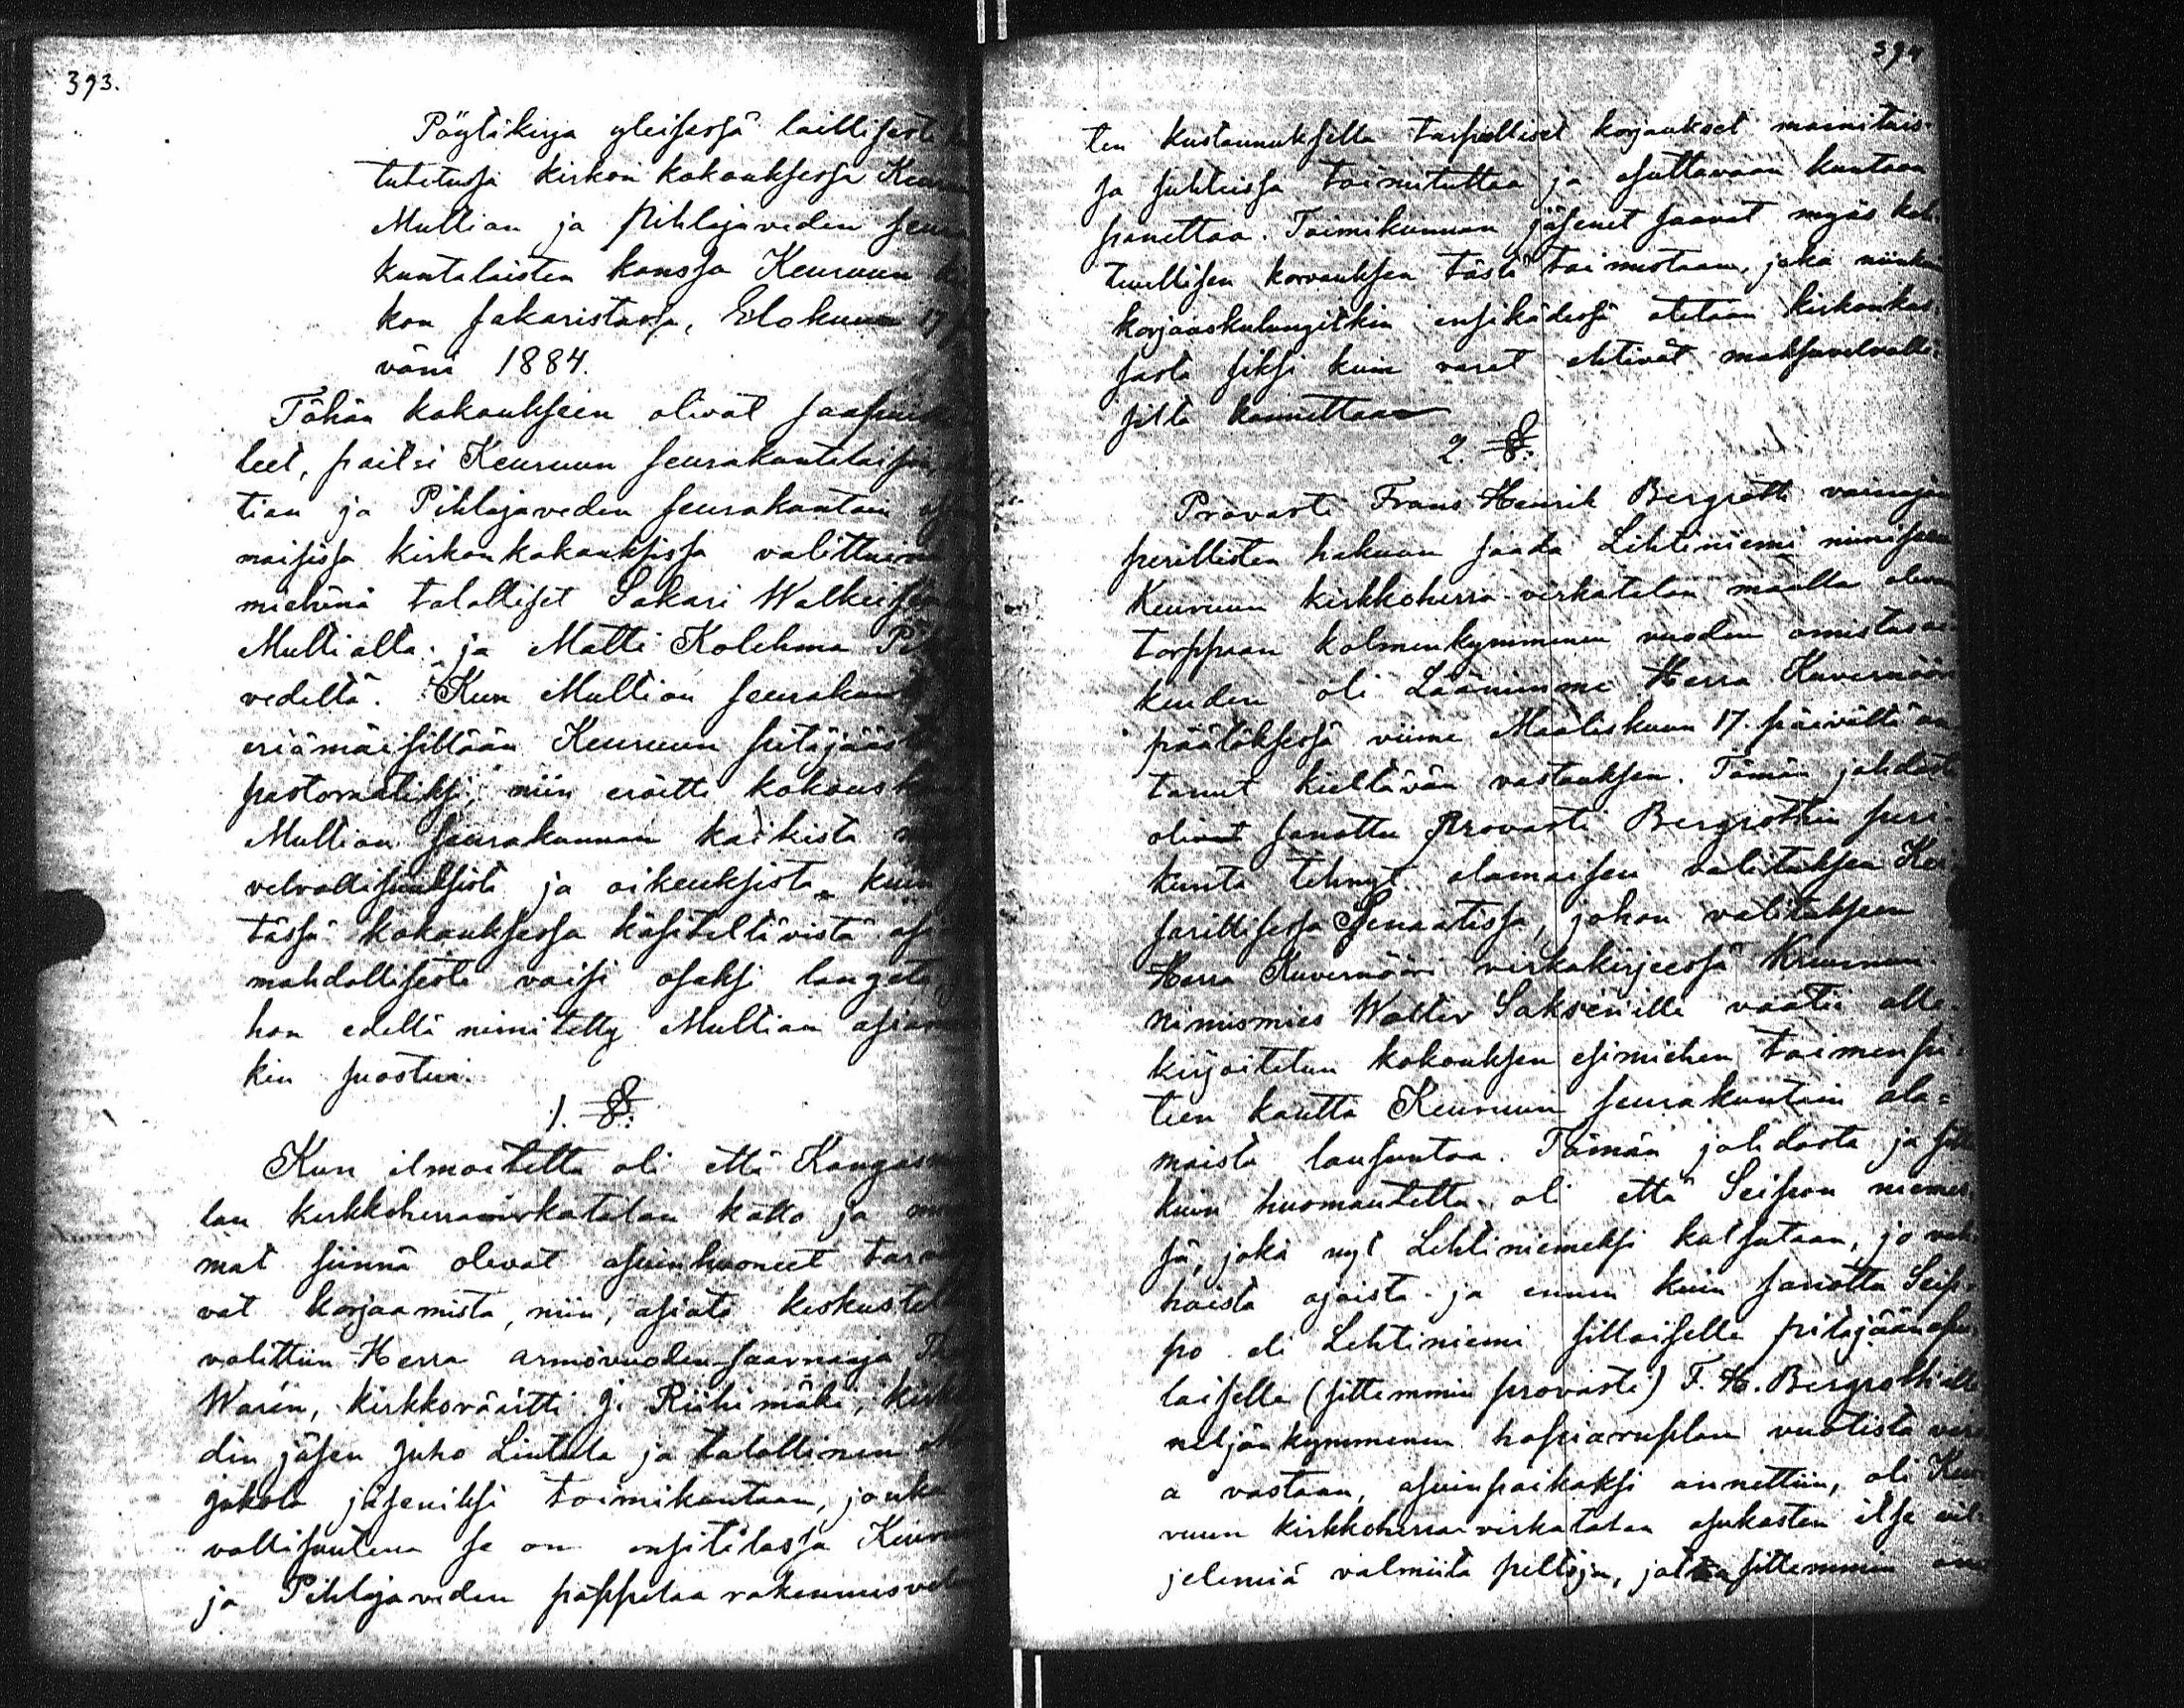 393.
Pöytäkirja yleisessä laillisesti
tutetussa kirkon kokouksessa Keuru
Multian ja Pihlajaveden seura
kuntalaisten kanssa Keuruun
kon sakaristossa, Elokuun 17
vänä 1884.
Tähän kokoukseen olivat saapu
leet, paitsi Keuruun seurakuntalaisia,
tian ja Pihlajaveden seurakuntain
naisissa kirkonkokouksissa valittuina
miehinä talolliset Sakari Walkeis
Multialta ja Matti Kolehma Pih
vedeltä. Kun Multian seurakunt
eriämäisillään Keuruun pitäjäästä
pastoratiksi, niin eroitti kokous
Multian seurakunnan kaikista
velvollisuuksista ja oikeuksista, kuin
tässä kokouksessa käsiteltävistä asi
mahdollisesti voisi osaksi langeta,
hon edellä nimitetty Multian asiam
kin suostui.
1. §:
Kun ilmoitettu oli että Kangasm
lan kirkkoherravirkatalon katto ja
mat siinä olevat asuinhuoneet tarv
vat korjaamista, niin, asiata keskustel
valittiin Herra armovuoden saarnaaja Th
Warén, kirkkoväärtti J. Riihimäki, kirk
din jäsen Juho Lintula ja talollinen
Jukola jäseniksi toimikuntaan, jonka
vollisuutena se on ensitilassa Keuru
ja Pihlajaveden pappilaa rakennusvel
394
ten kustannuksella tarpeelliset korjaukset mainituis-
sa suhteissa toimituttaa ja asuttavaan kuntoon
panettaa. Toimikunnan jäsenet saavat myös koh-
tuullisen korvauksen tästä toimestaan, joka niinkuin
korjauskulungitkin ensikädessä otetaan kirkonkas-
sasta siksi kuin varat ehtivät maksuvelvolli-
silta kannettaa
2. §:
Provasti Frans Henrik Bergroth vainajan
perillisten hakuun saada Lehtiniemi nimiseen
Keuruun kirkkoherra-virkatalon maalla olevan
torppaan kolmenkymmenen vuoden omistusoi-
keuden oli Läänimme Herra Kuvernööri
päätöksessä viime Maaliskuun 17. päivältä an
tanut kieltävän vastauksen. Tämän johdosta
olivat sanottu Provasti Bergrothin peri-
kunta tehnyt alamaisen valituksen Kei
sarillisessa Senaatissa, johon valitukseen
Herra Kuvernööri virkakirjeessä Kruunun-
nimismies Walter Saksénille vaatii alle-
kirjoitetun kokouksen esimiehen toimenpi-
teen kautta Keuruun seurakuntain ala=
maista lausuntoa. Tämän johdosta ja sitte
kuin huomautettu oli että Seipon niemes-
sä, joka nyt Lehtiniemeksi kutsutaan, jo van
hoista ajoista ja ennen kuin sanottu Seip-
po eli Lehtiniemi silloiselle pitäjäänapu-
laiselle (sittemmin provasti) F. H. Bergrothille
neljänkymmenen hopiaruplan vuotista vero
a vastaan, asuinpaikaksi annettiin, oli Keu-
ruun kirkkoherra virkatalon asukasten itse vil-
jelemiä valmiita peltoja, jotka sittemmin